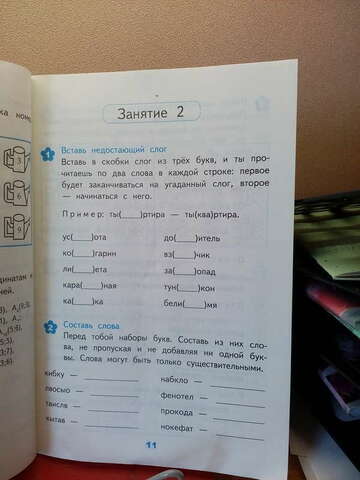 Занятие 2
1 Вставь недостающий слог
Вставь в скобки слог из трёх букв, и ты про-
читаешь по два слова в каждой строке: первое
будет заканчиваться на угаданный слог, второе
— начинаться с него.
Пример: ты(____)ртира — ты(ква)ртира.
ус(____)ота до(____)итель
ко(____)гарин вз(____)чик
ли(____)ета за(____)опад
кара(____)ная тун(____)кон
ка(____)ка бели(____)мя
2 Составь слова
Перед тобой наборы букв. Составь из них сло-
ва, не пропуская и не добавляя ни одной бук-
вы. Слова могут быть только существительными.
кибку — набкло —
лвосыо — фенотел —
твислв — прокода —
кытав — нокефат —
11
3
6
9